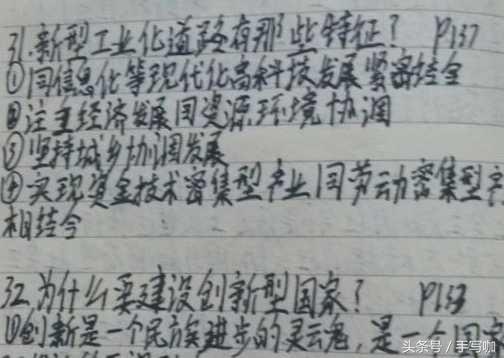 31.新型工业化道路有那些特征? P137
①同信息化等现代化高科技发展紧密结合
②注重经济发展同资源环境协调
③坚持城乡协调发展
④实现资金技术密集型产业同劳动密集型产
相结合
32.为什么要建设创新型国家? P138
①创新是一个民族进步的灵魂,是一个国
头条号 / 手写咖